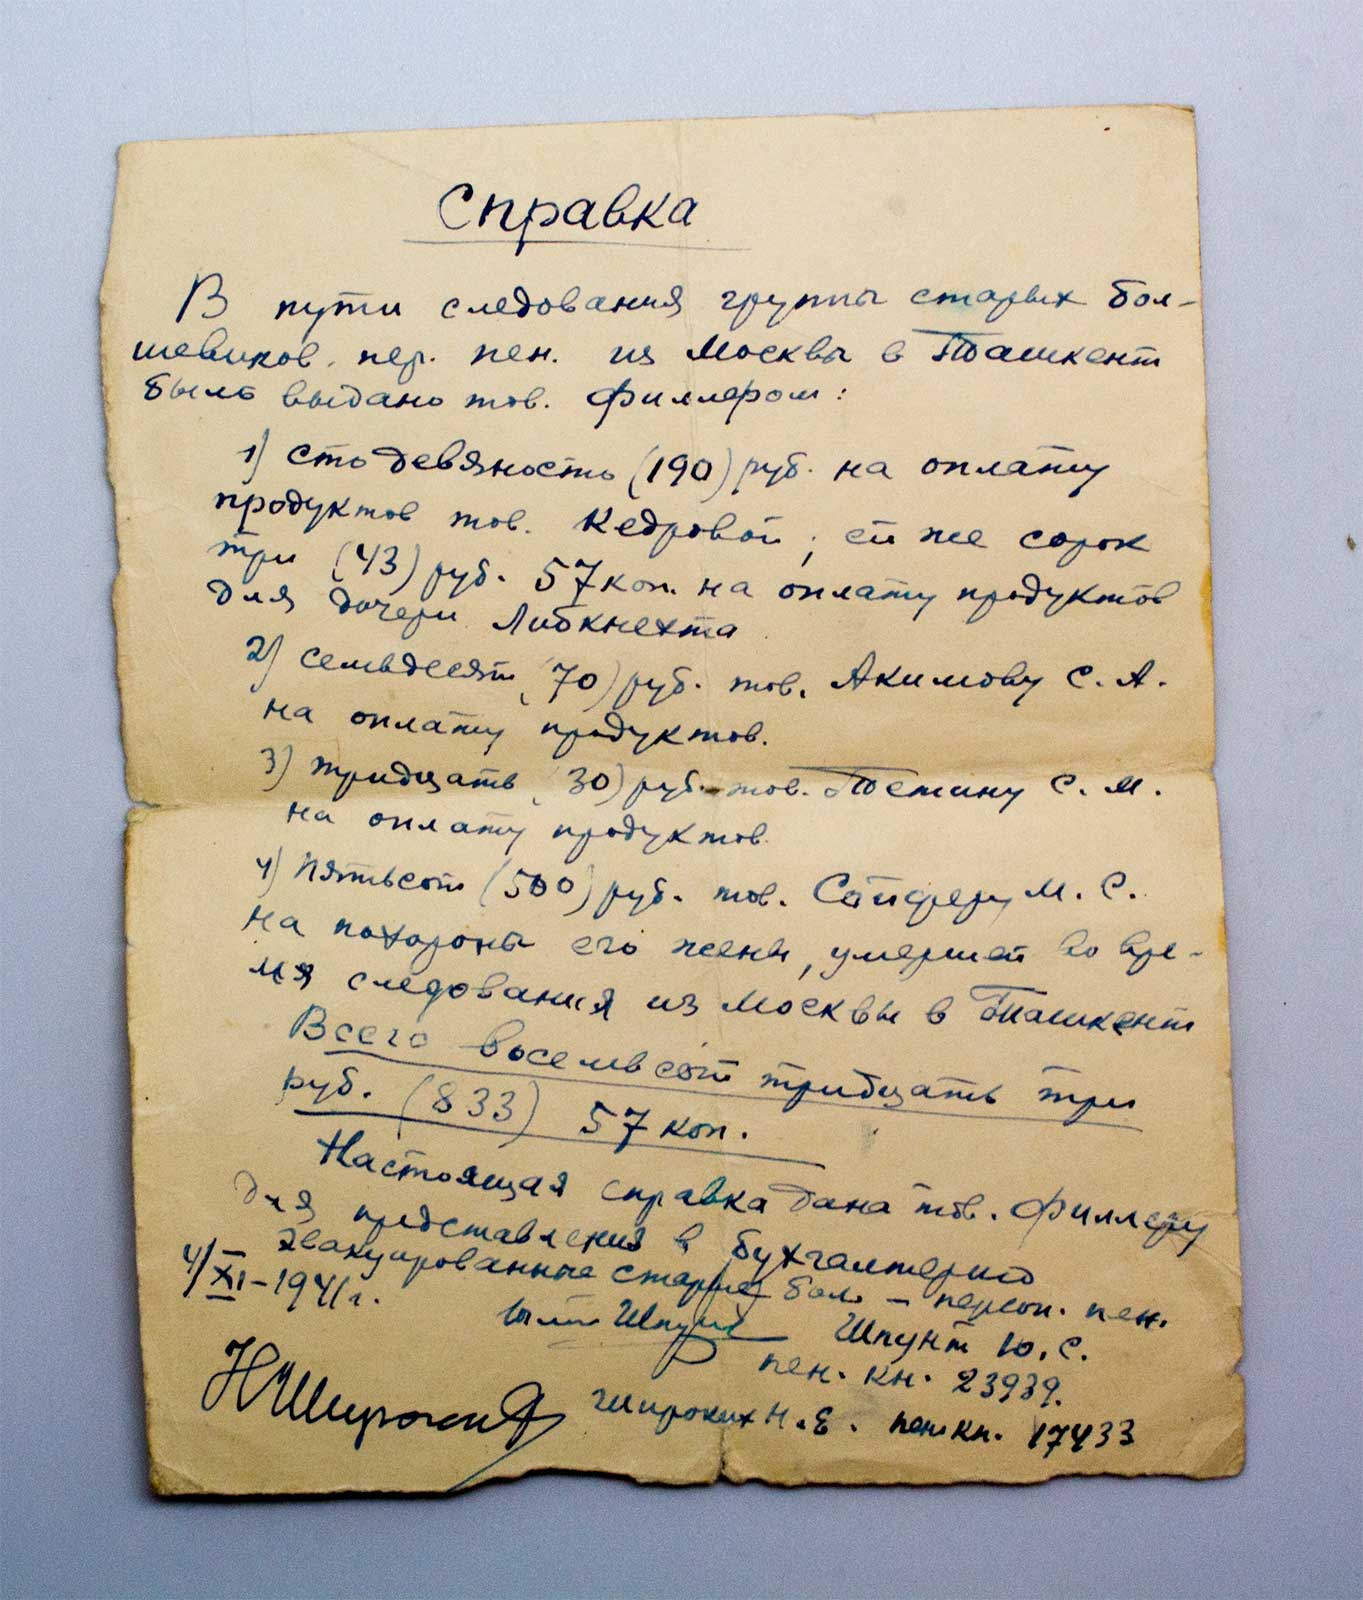 Справка
В пути следования группы старых бол-
шевиков. пер. пен. из Москвы в Ташкент
было выдано тов. Филлером:
1) сто девяносто (190) руб. на оплату
продуктов тов. Кедровой; ей же сорок
три (43) руб. 57 коп. на оплату продуктов
для дочери Либкнехта
2) семьдесят (70) руб. тов. Акимову С. А.
на оплату продуктов.
3) тридцать (30) руб. тов. Тетину С. М.
на оплату продуктов.
4) пятьсот (500) руб. тов. Сойферу М. С.
на похороны его жены, умершей во вре-
мя следования из Москвы в Ташкент
Всего восемьсот тридцать три
руб. (833) 57 коп.
Настоящая справка дана тов. Филлеру
для представления в бухгалтерию
эвакуированные старые бол. – персон. пен.
4/XI-1941 г.
Шпунт Ю. С.
пен. кн. 23939.
Широких Н. Е. пен. кн. 17433